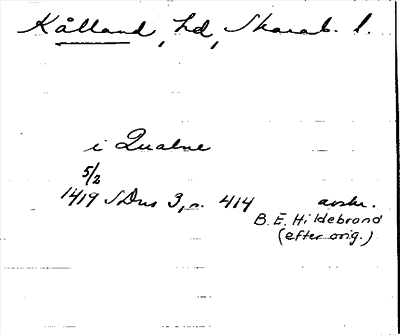 Kålland, hd, Skarab. l.
i Qualne
5/2
1419 SDns 3, s. 414 avskr.
B. E. Hildebrand
(efter orig.)